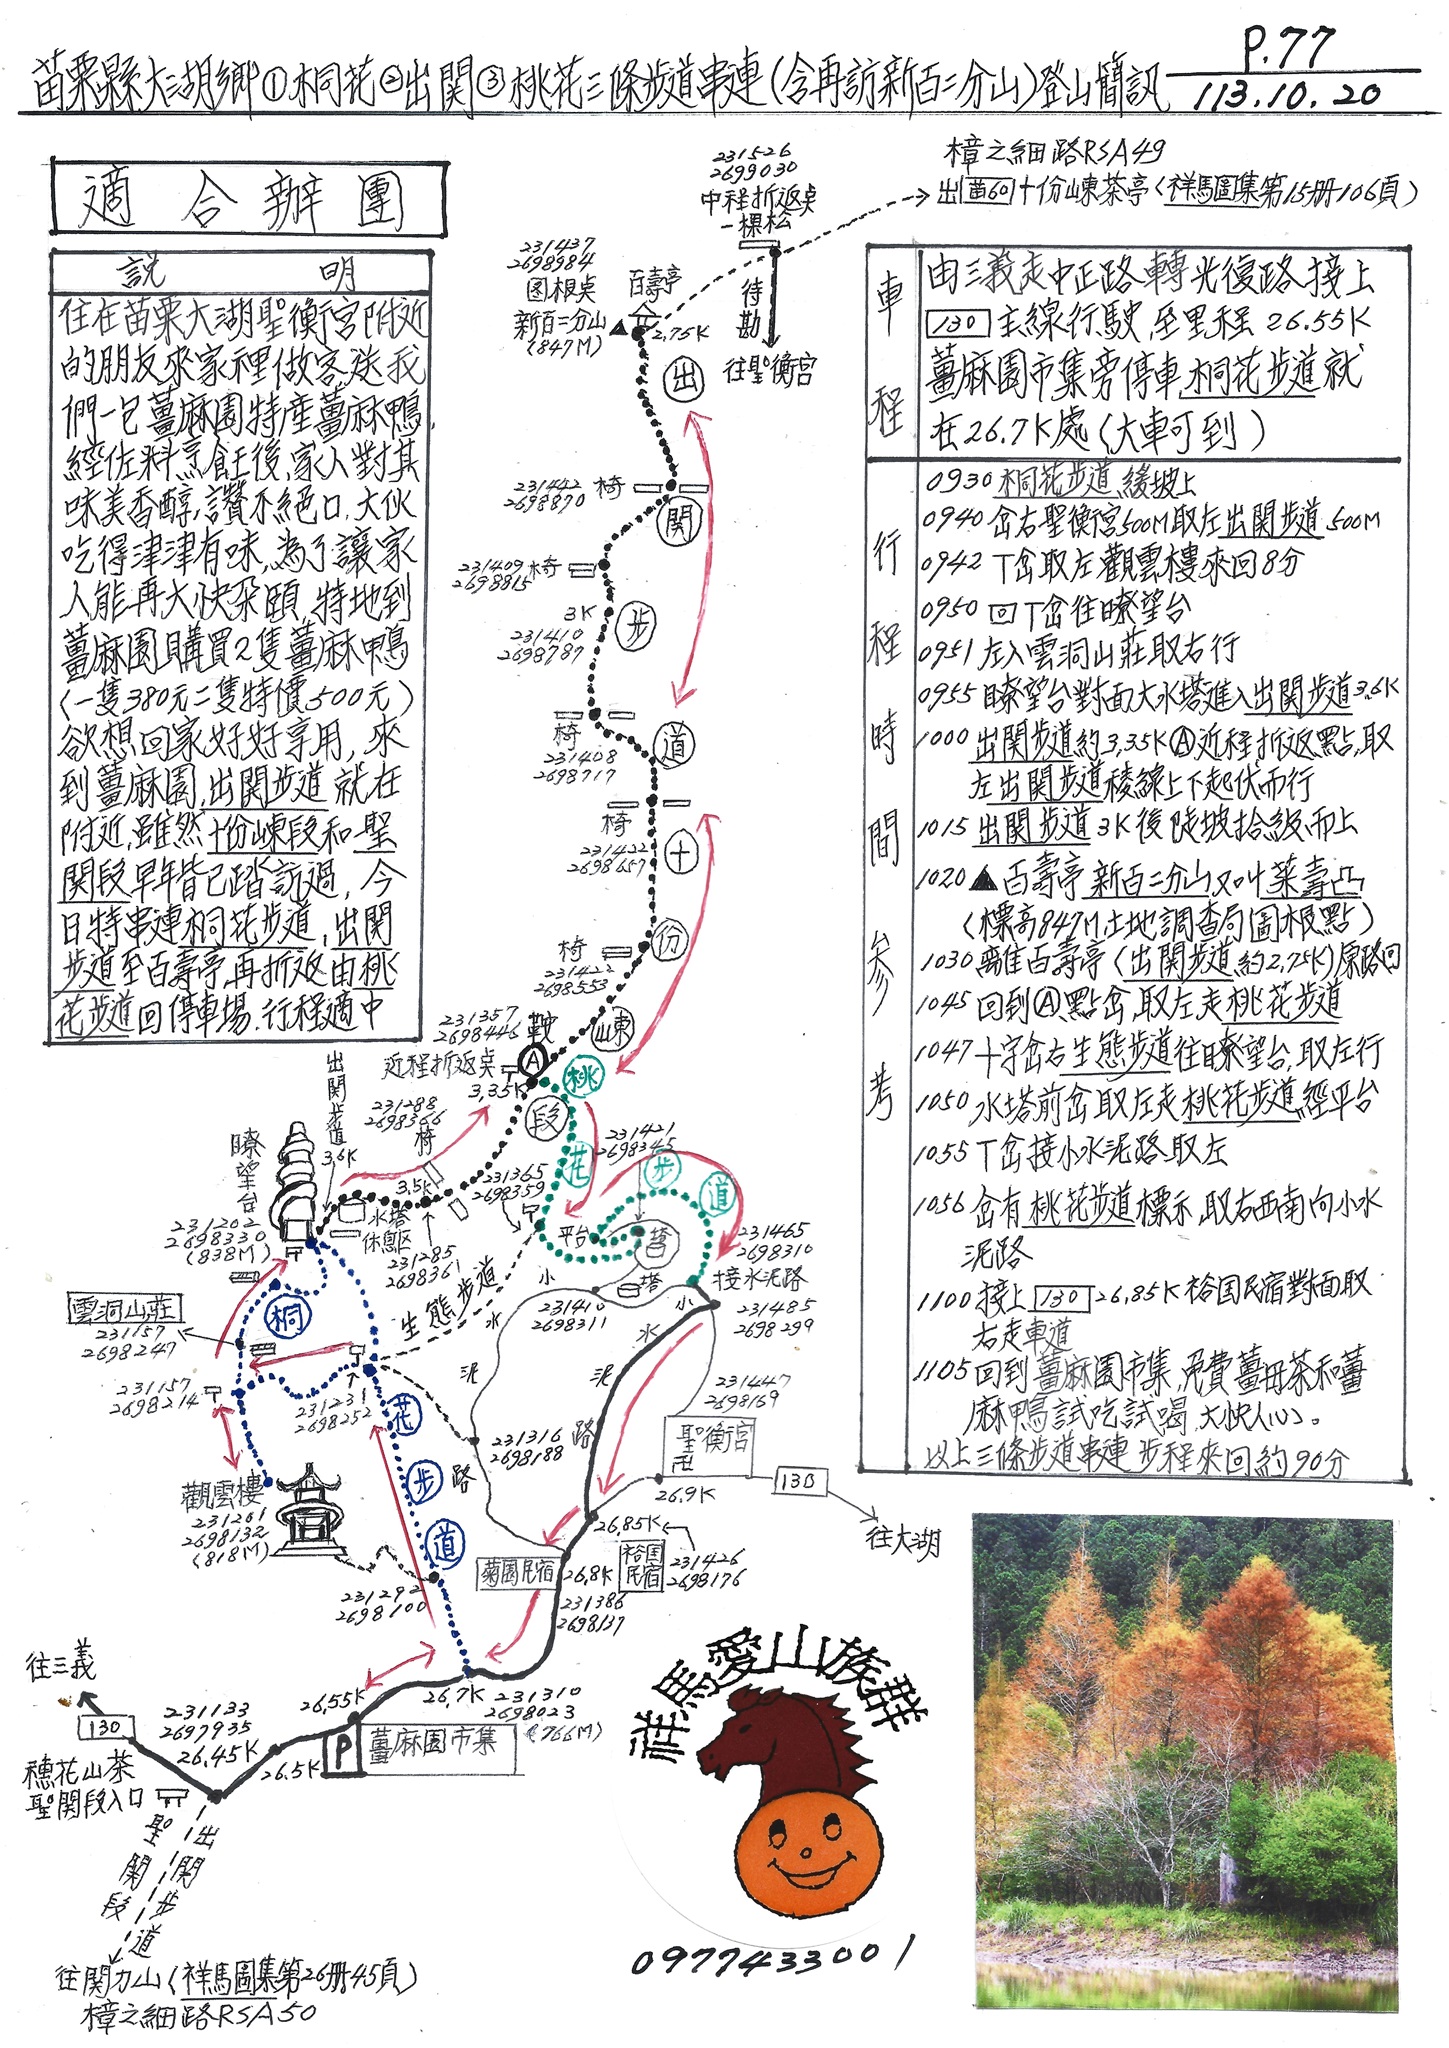 P.77
苗栗縣大湖鄉①桐花②出関③桃花三條步道串連(含再訪新百二分山)登山簡訊
113.10.20
適合辦團
說明
住在苗栗大湖聖衡宮附近
的朋友來家裡做客送我
們一包薑麻園特產薑麻鴨,
經佐料烹飪後,家人對其
味美香醇,讚不絕口,大伙
吃得津津有味,為了讓家
人能再大快朵頤,特地到
薑麻園購買2隻薑麻鴨
(一隻380元二隻特價500元)
欲想回家好好享用,來
到薑麻園,出関步道就在
附近,雖然十份崠段和聖
関段早年皆已踏訪過,今
日特串連桐花步道,出関
步道至百壽亭,再折返由桃
花步道回停車場.行程適中
車程
由三義走中正路轉光復路接上
130主線行駛,至里程26.55K
薑麻園市集旁停車,桐花步道就
在26.7K處(大車可到)
行程時間參考
0930桐花步道緩坡上
0940岔右聖衡宮500M取左出関步道500M
0942丁岔取左觀雲樓來回8分
0950回丁岔往瞭望台
0951左入雲洞山莊取右行
0955瞭望台對面大水塔進入出関步道3.6K
1000出関步道約3.35KⒶ近程折返點,取
左出関步道稜線上下起伏而行
1015出関步道3K後陡坡拾級而上
1020▲百壽亭新百二分山又叫葉壽凸
(標高847M土地調查局圖根點)
1030離百壽亭(出関步道約2.75K)原路回
1045回到Ⓐ點岔,取左走桃花步道
1047十字岔右生態步道往瞭望台,取左行
1050水塔前岔取左走桃花步道經平台
1055丁岔接小水泥路取左
1056岔有桃花步道標示,取右西南向小水
泥路
1100接上130 26.85K裕国民宿對面取
右走車道
1105回到薑麻園市集,免費薑母茶和薑
麻鴨試吃試喝,大快人心。
以上三條步道串連步程來回約90分
樟之細路RSA49
出苗60十份崠茶亭(祥馬圖集第15册106頁)
231526
2699030
中程折返桌
一棵松
待勘
往聖衡宮
231437
2698984
図根桌
新百二分山
(847M)
百壽亭
2.75K
出関步道十份崠段
231442
2698870
椅
231409
2698815
椅
3K
231410
2698787
椅
231408
2698717
椅
231422
2698657
椅
231422
2698553
231357
2698446
鞍
近程折返桌
Ⓐ
3.35K
桃花步道
出関步道
3.6K
瞭望台
231202
2698330
(838M)
231288
2698366
椅
3.5K
水塔
休息区
231285
2698361
231365
2698359
231421
2698345
平台
營
塔
231410
2698311
231465
2698310
接水泥路
231485
2698299
生態步道
小水泥路
小水泥路
桐花步道
雲洞山莊
231157
2698247
231157
2698214
231231
2698252
觀雲樓
231261
2698132
(818M)
231316
2698188
231447
2698169
聖衡宮
卍
26.9K
130
往大湖
26.85K
裕国民宿
231426
2698176
菊園民宿
26.8K
231386
2698137
231292
2698100
26.7K
231310
2698023
(766M)
26.55K
P
薑麻園市集
26.5K
往三義
130
231133
2697935
26.45K
穗花山茶
聖関段入口
出関步道
聖関段
往関刀山(祥馬圖集第26册45頁)
樟之細路RSA50
祥馬愛山族群
0977433001